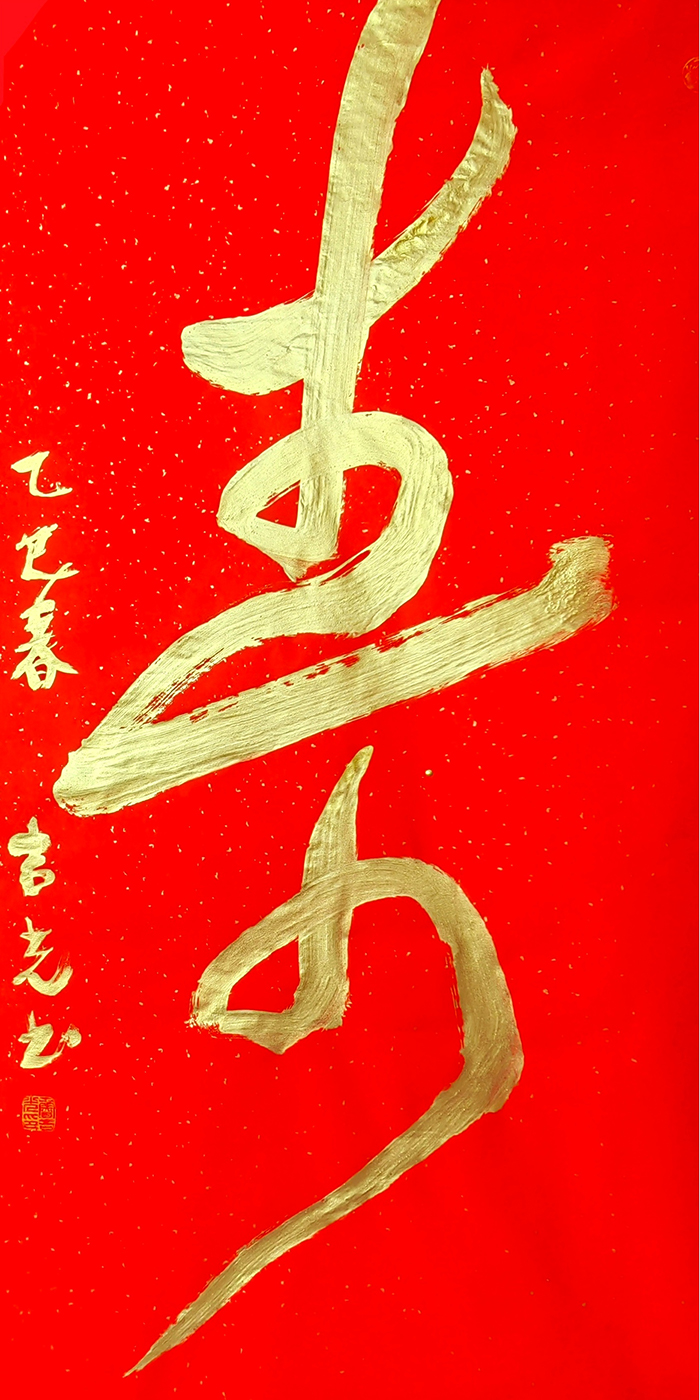 寿
乙巳春 吉光书